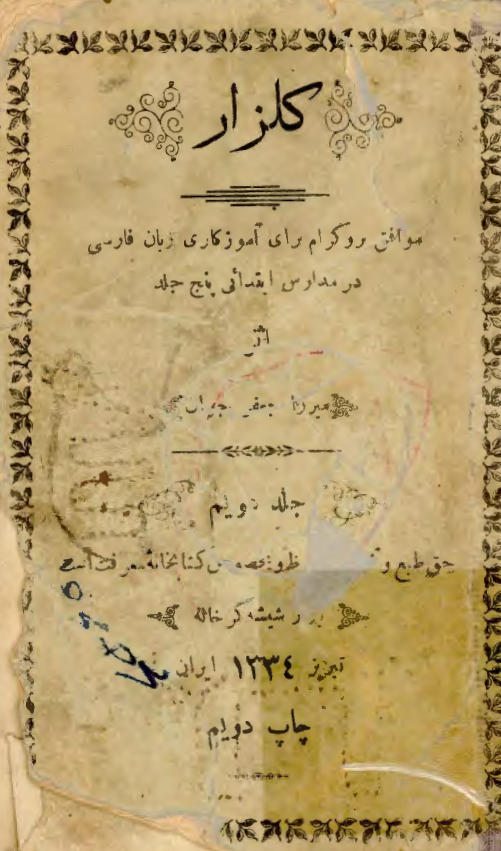 كلزار
موافق پروگرام برای آموزکاری زبان فارسی
در مدارس ابتدائی پنج جلد
اثر
میرزا جعفر
جلد دویم
حق طبع و مخصوص کتابخانهٔ معرفت است
شیشه گر خانه
تبریز ١٣٣٤ ایران
چاپ دویم